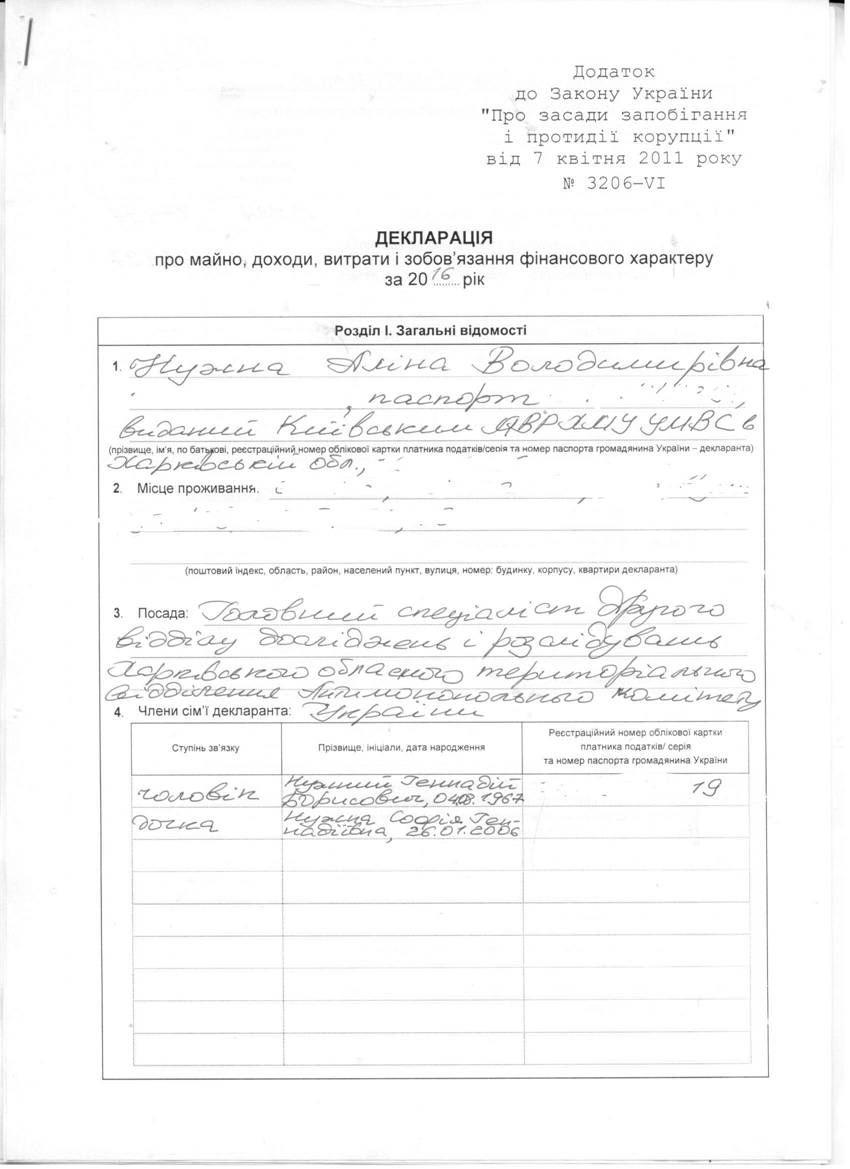 Додаток
до Закону України
"Про засади запобігання
і протидії корупції"
від 7 квітня 2011 року
№ 3206-VI
ДЕКЛАРАЦІЯ
про майно, доходи, витрати і зобов'язання фінансового характеру
за 2016 рік
Розділ І. Загальні відомості
1. Нужна Аліна Володимирівна
, паспорт
виданий Київським ХМУ УМВС в
(прізвище, ім'я, по батькові, реєстраційний номер облікової картки платника податків/серія та номер паспорта громадянина України – декларанта)
Харківській обл.,
2. Місце проживання:
(поштовий індекс, область, район, населений пункт, вулиця, номер: будинку, корпусу, квартири декларанта)
3. Посада: Головний спеціаліст другого
відділу досліджень і розслідувань
Харківського обласного територіального
відділення Антимонопольного комітету
4. Члени сім'ї декларанта: України
Ступінь зв'язку
Прізвище, ініціали, дата народження
Реєстраційний номер облікової картки
платника податків/ серія
та номер паспорта громадянина України
чоловік
Нужний Геннадій
Борисович, 04.08.1967
19
дочка
Нужна Софія Ген-
надіївна, 26.01.2006